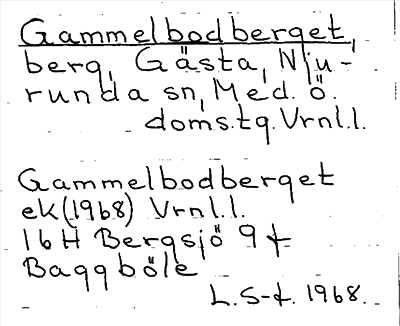 Gammelbodberget,
berg, Gästa, Nju-
runda sn, Med. ö.
doms.tg. Vrnl.l.
Gammelbodberget
ek (1968) Vrnl.l.
16H Bergsjö 9f
Baggböle
L. S-f. 1968.